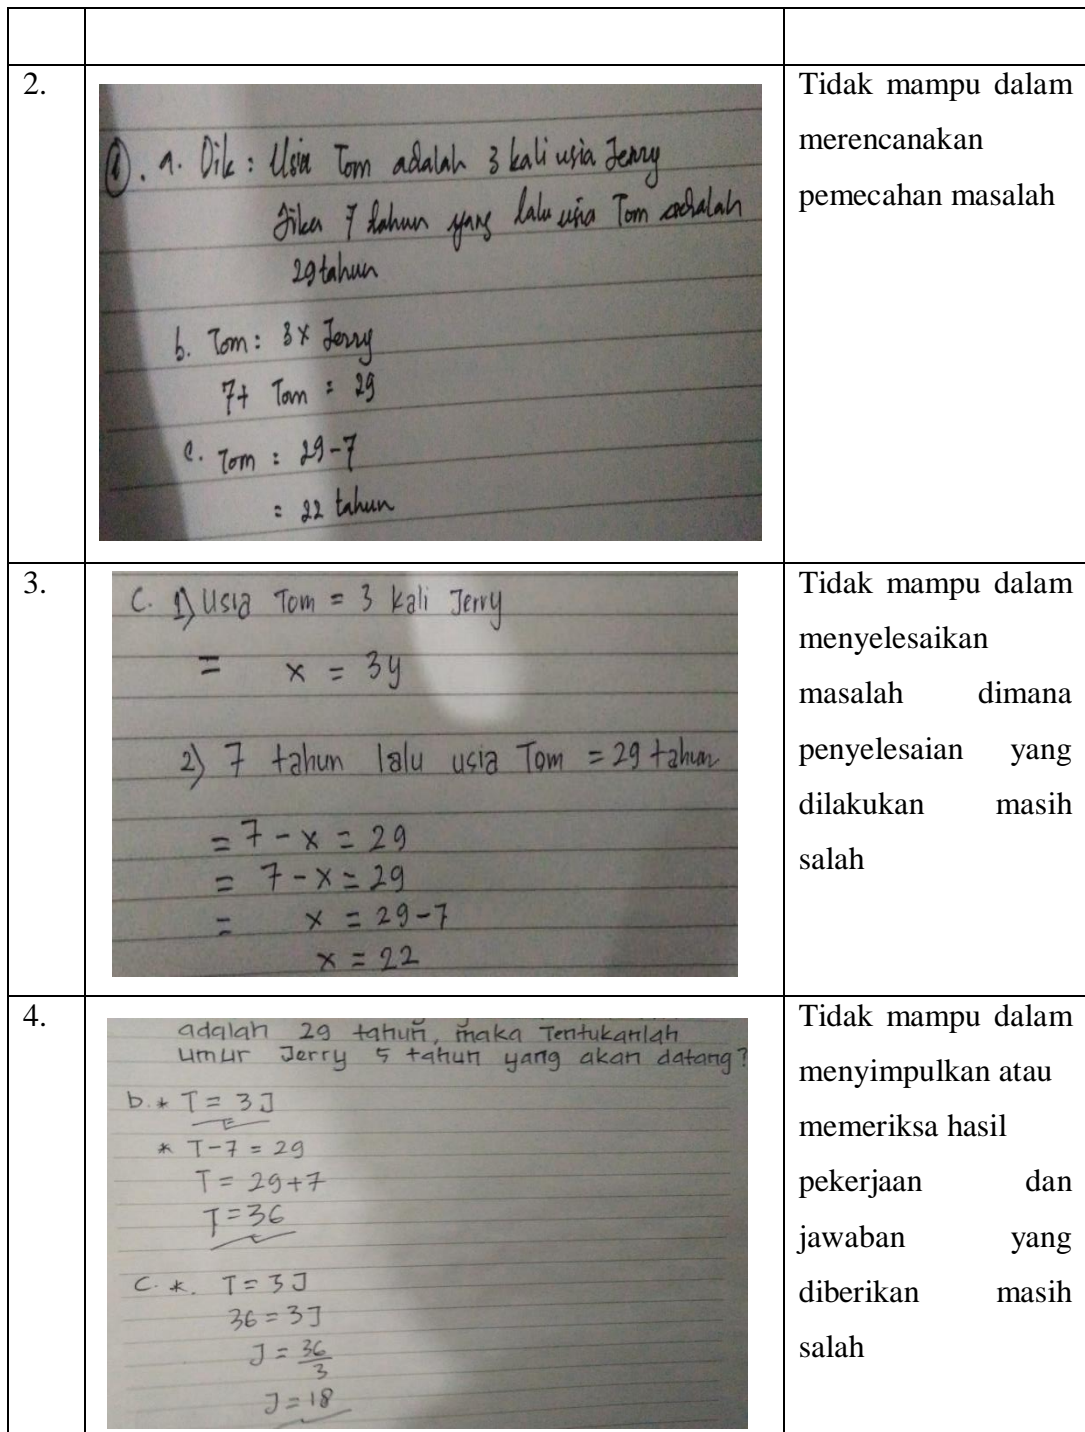 2.
①. a. Dik : Usia Tom adalah 3 kali usia Jerry
Jika 7 tahun yang lalu usia Tom adalah
29 tahun
b. Tom : 3x Jerry
7+ Tom = 29
c. Tom : 29-7
= 22 tahun
Tidak mampu dalam
merencanakan
pemecahan masalah
3.
C. 1) Usia Tom = 3 kali Jerry
= x = 3y
2) 7 tahun lalu usia Tom = 29 tahun
= 7 - x = 29
= 7 - x = 29
= x = 29-7
x = 22
Tidak mampu dalam
menyelesaikan
masalah dimana
penyelesaian yang
dilakukan masih
salah
4.
adalah 29 tahun, maka Tentukanlah
umur Jerry 5 tahun yang akan datang?
b. * T = 3J
* T-7 = 29
T = 29+7
T = 36
C. *. T = 3J
36 = 3J
J = 36/3
J = 18
Tidak mampu dalam
menyimpulkan atau
memeriksa hasil
pekerjaan dan
jawaban yang
diberikan masih
salah